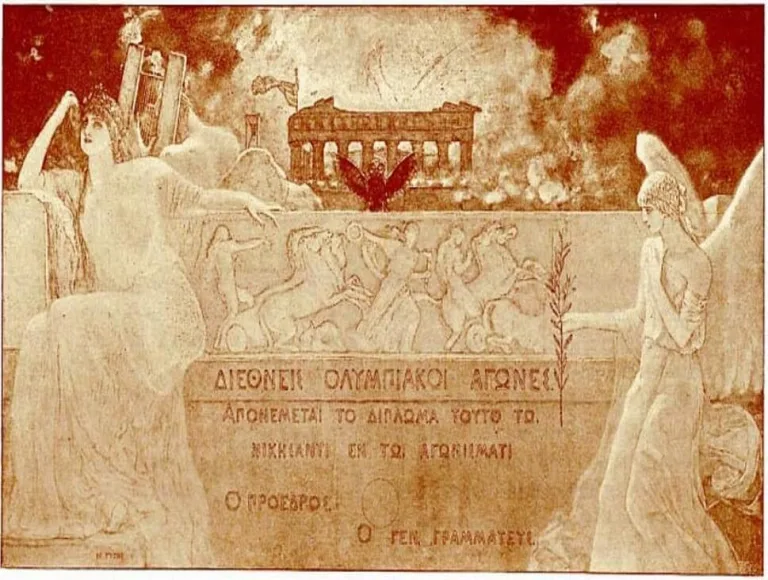 ΔΙΕΘΝΕΙΣ ΟΛΥΜΠΙΑΚΟΙ ΑΓΩΝΕΣ
ΑΠΟΝΕΜΕΤΑΙ ΤΟ ΔΙΠΛΩΜΑ ΤΟΥΤΟ ΤΩ.
ΝΙΚΗΣΑΝΤΙ ΕΝ ΤΩ. ΑΓΩΝΙΣΜΑΤΙ
Ο ΠΡΟΕΔΡΟΣ.
Ο ΓΕΝ. ΓΡΑΜΜΑΤΕΥΣ.